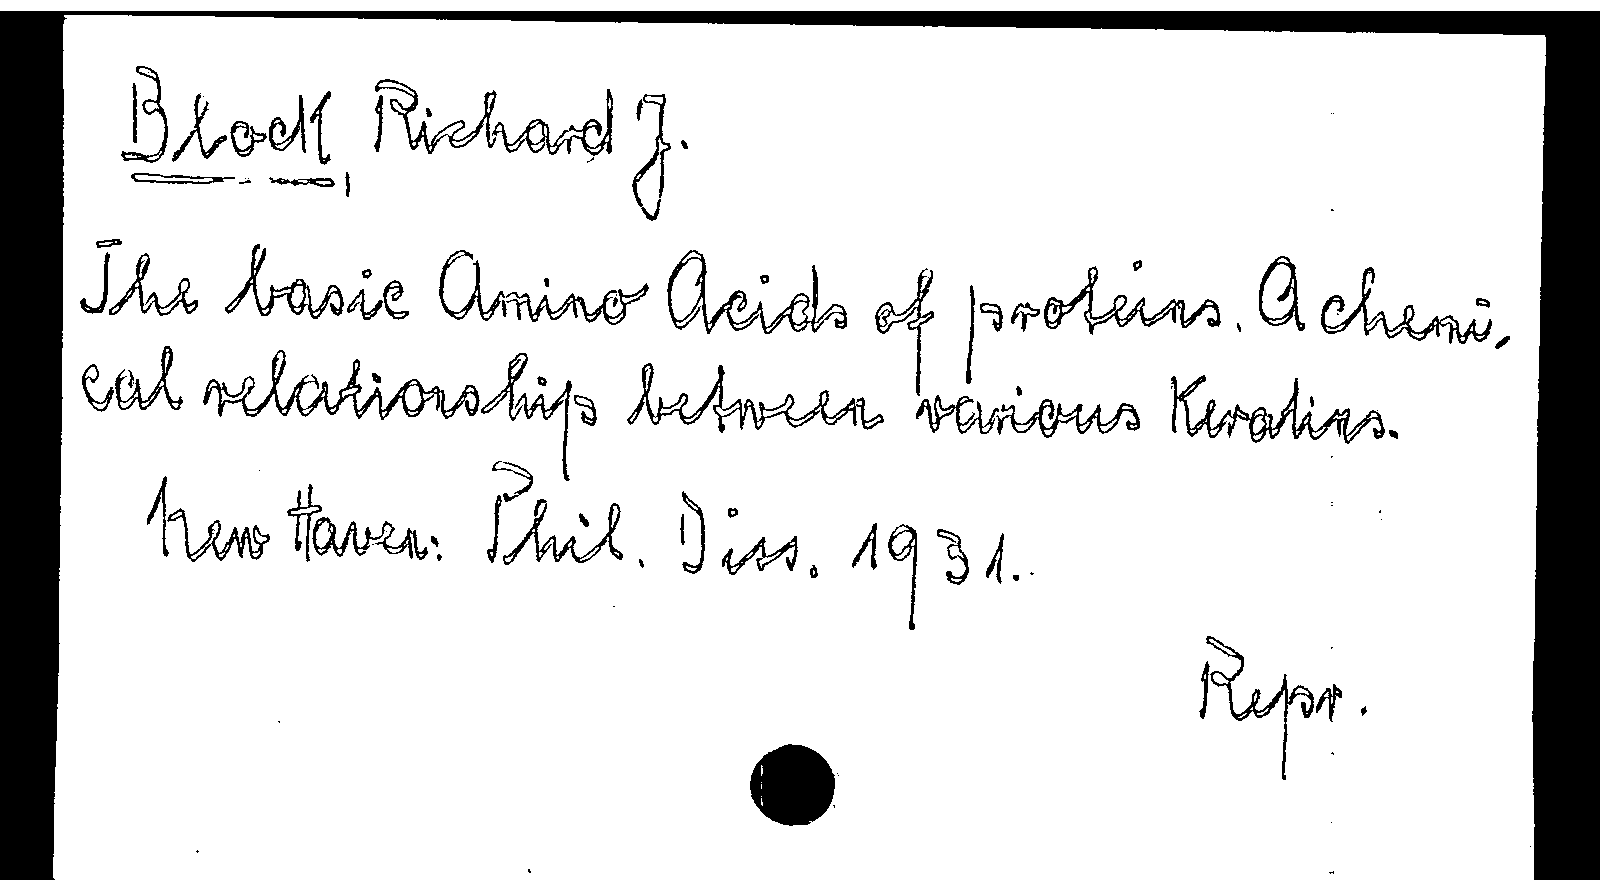 Block Richard J.
The basic Amino Acids of proteins. A chemi,
cal relationship between various Keratins.
New Haven: Phil. Diss. 1931.
Repr.